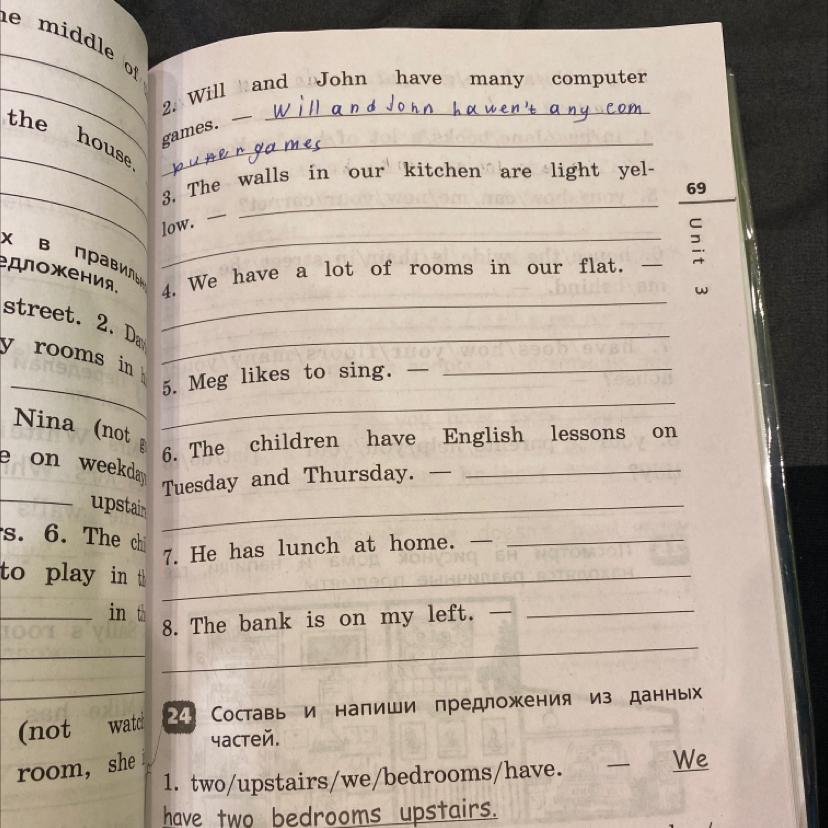 he middle of
the house.
х в правиль
едложения.
street. 2. Dav
y rooms in h
Nina (not g
e on weekday
upstair
rs. 6. The chi
to play in th
in th
(not watch
room, she i
2. Will and John have many computer
games. — Will and John haven't any com
puter games
3. The walls in our kitchen are light yel-
low. —
4. We have a lot of rooms in our flat. —
5. Meg likes to sing. —
6. The children have English lessons on
Tuesday and Thursday. —
7. He has lunch at home. —
8. The bank is on my left. —
24 Составь и напиши предложения из данных
частей.
1. two/upstairs/we/bedrooms/have. — We
have two bedrooms upstairs.
69
Unit 3